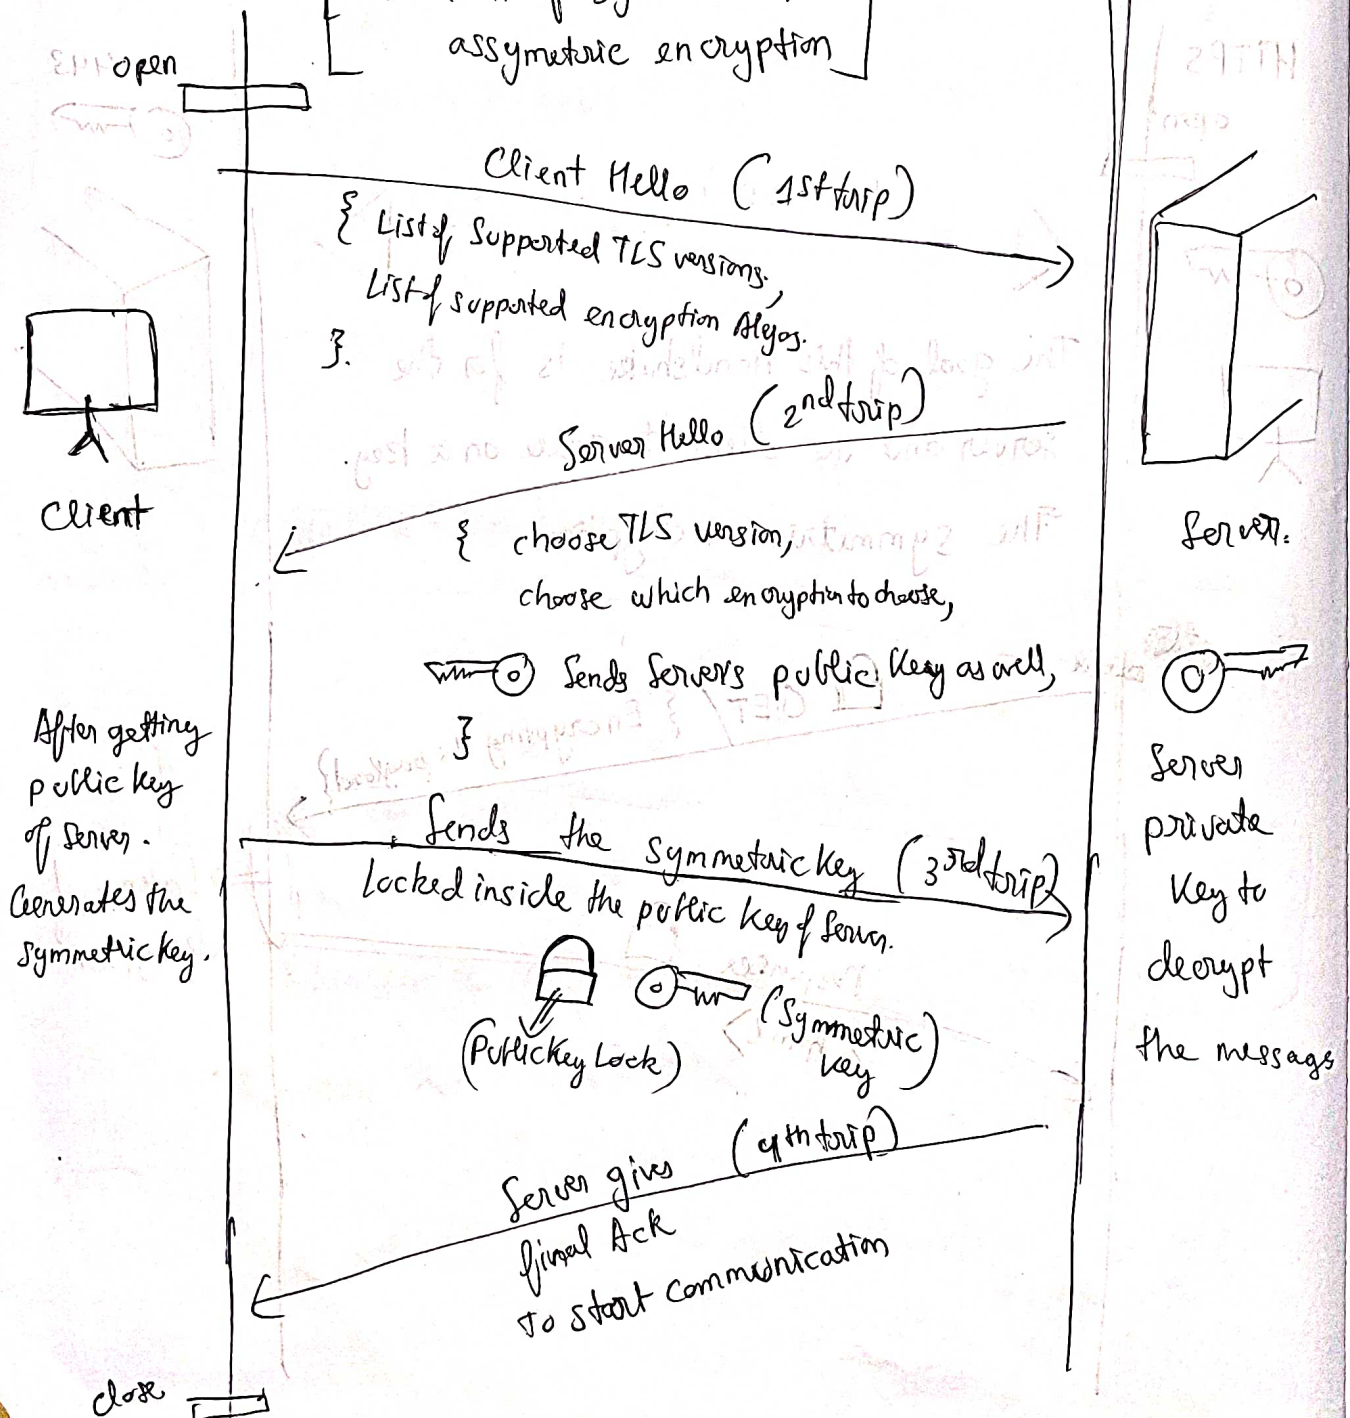 assymetric encryption
open
Client Hello (1st trip)
{ List of Supported TLS versions,
List of supported encryption Algos.
}.
Server Hello (2nd trip)
Client
Server.
{ choose TLS version,
choose which encryption to choose,
Sends Server's public key as well,
}
After getting
public key
of Server.
Generates the
symmetric key.
Server
private
key to
decrypt
the message
Sends the symmetric key (3rd trip)
Locked inside the public key of Server.
(Public Key Lock)
(Symmetric
key)
Server gives (4th trip)
final Ack
To start communication
close
HTTPS
open
443
The symmetric
GET /